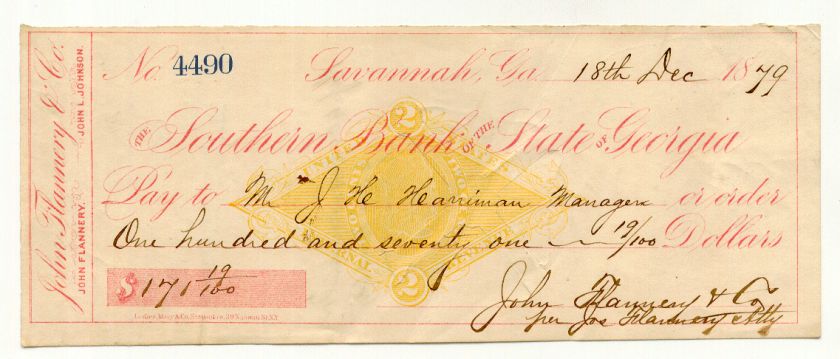 John Flannery & Co.
JOHN FLANNERY. JOHN L. JOHNSON.
No. 4490 Savannah, Ga. 18th Dec 1879
THE Southern Bank OF THE State OF Georgia
Pay to Mr J He Harriman Manager or order
One hundred and seventy one 19/100 Dollars
$171 19/100
John Flannery & Co
per Jos Flannery Atty
UNITED STATES
INTERNAL REVENUE
2
2